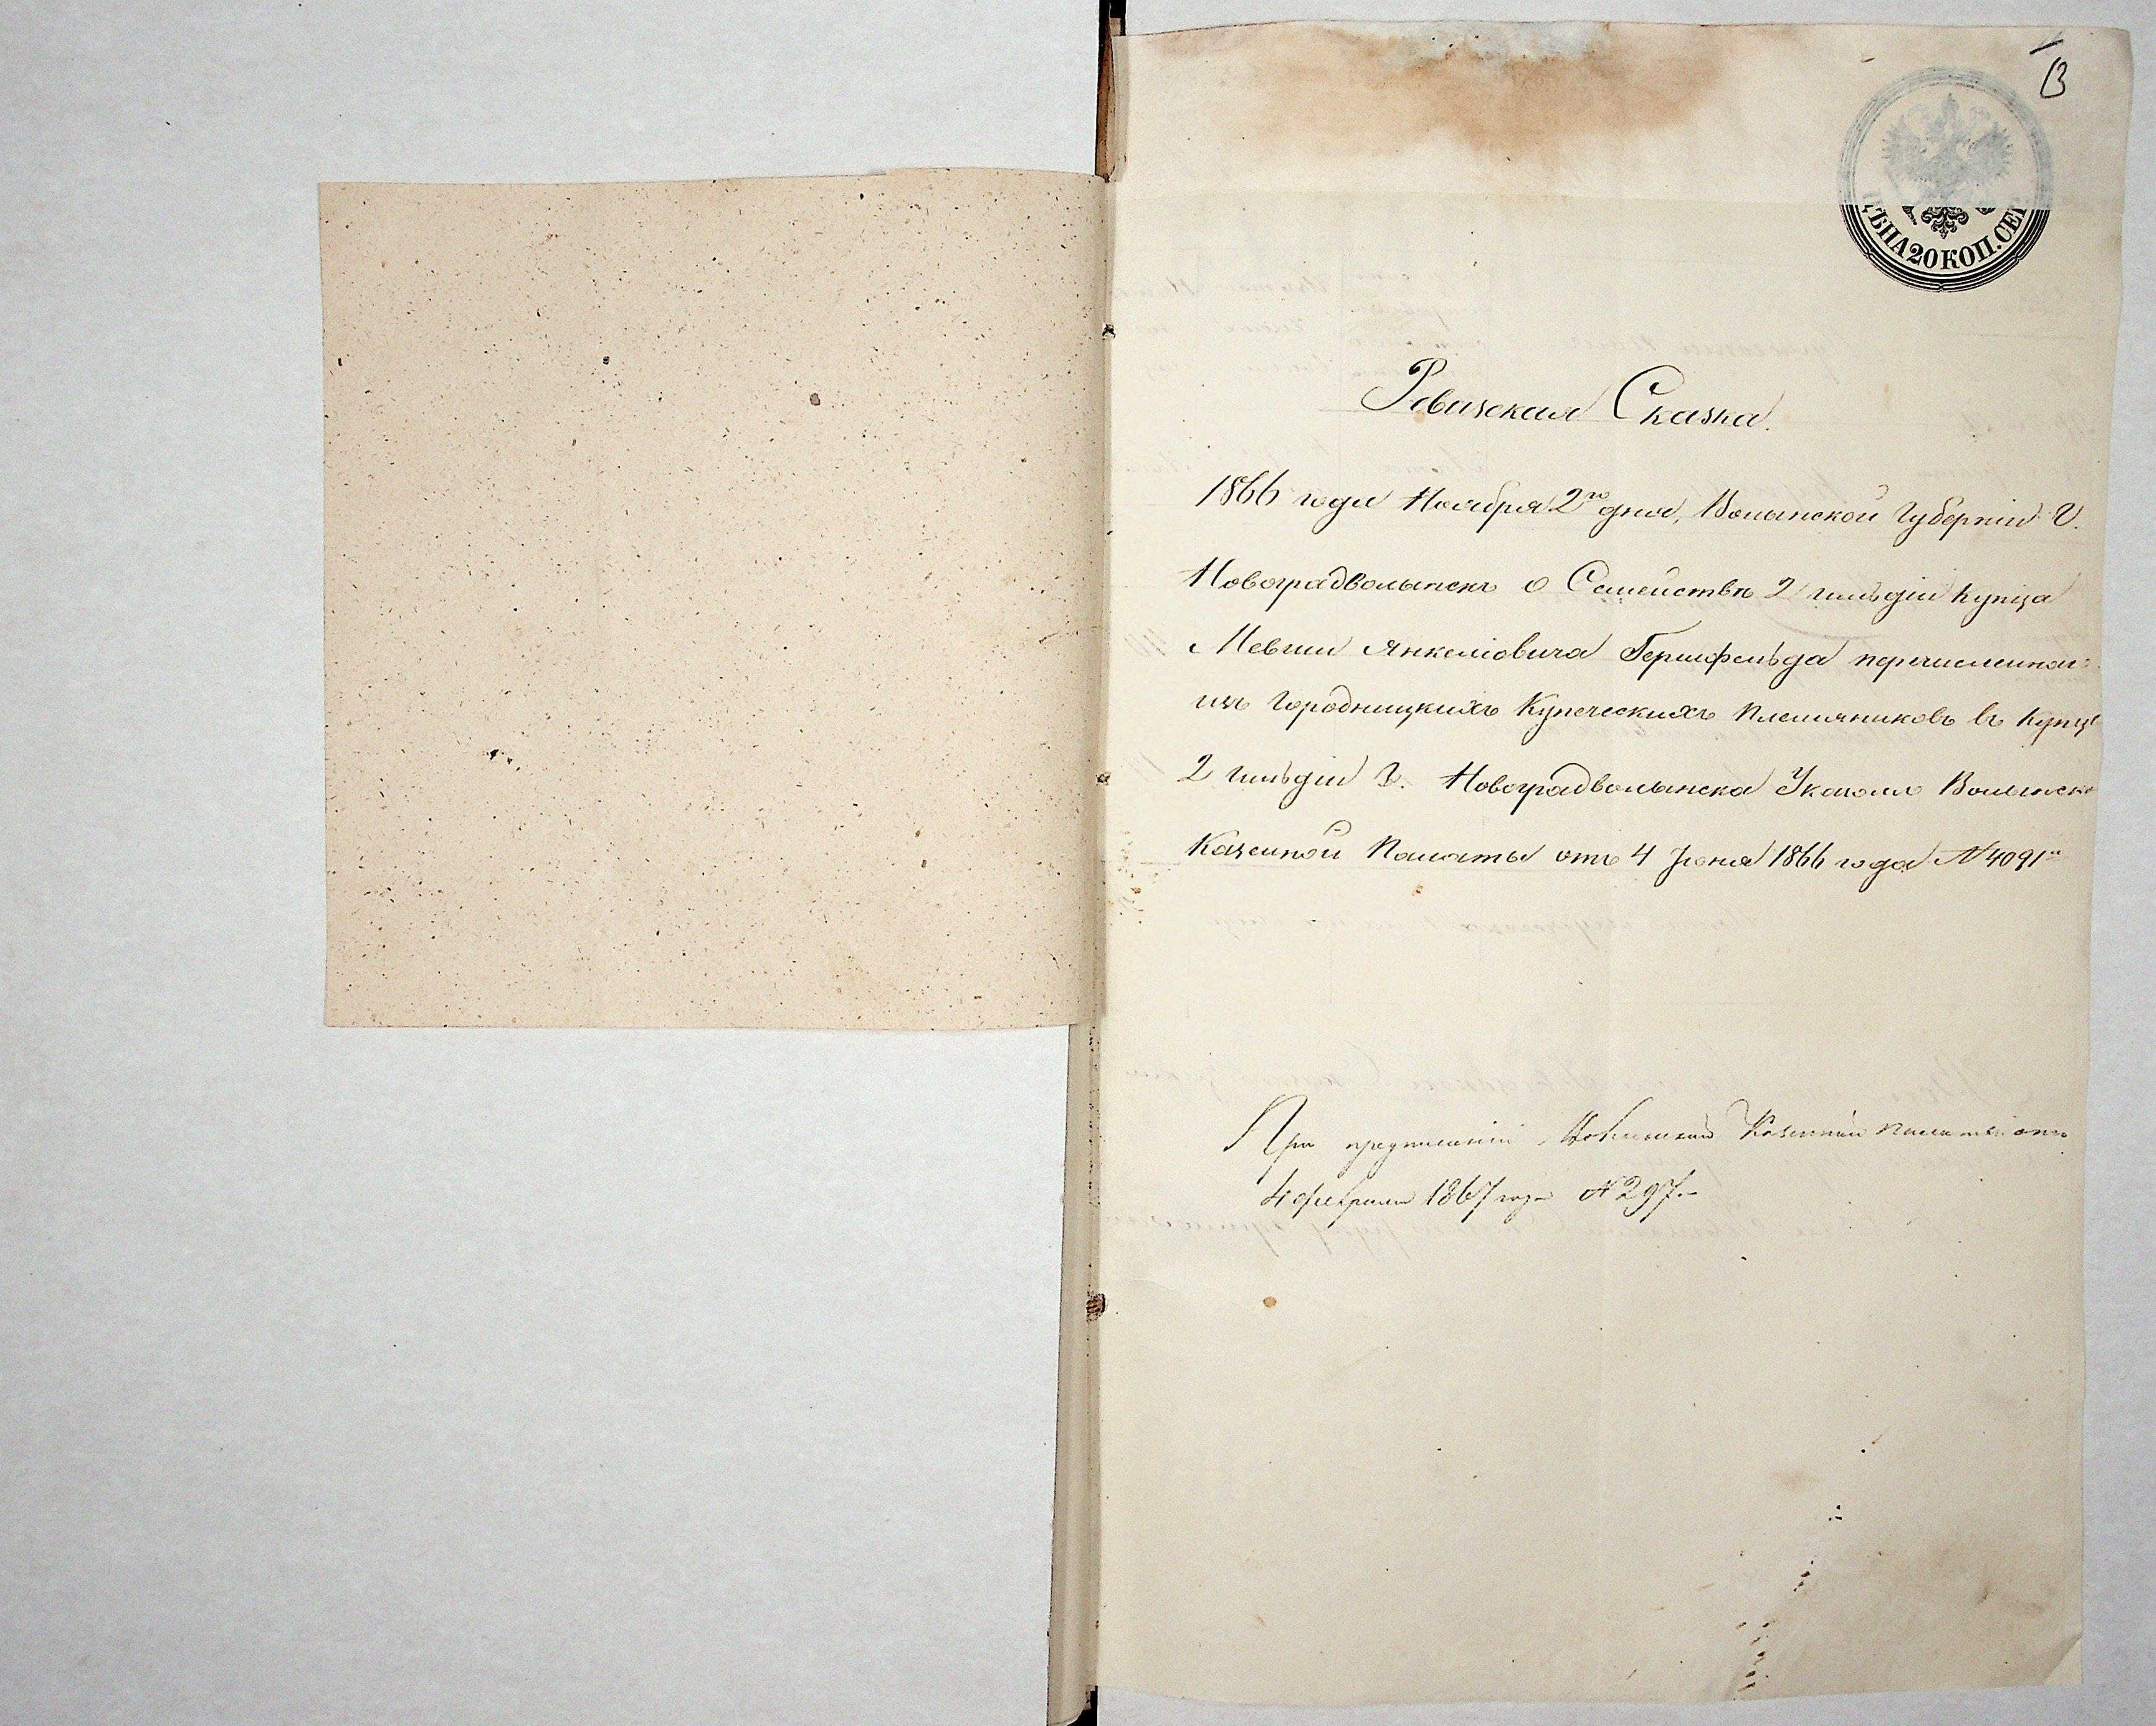 13
ЦѢНА 20 КОП. СЕР
Ревизская Сказка.
1866 года Ноября 2го дня, Волынской Губерніи Г.
Новоградволынскъ о Семействѣ 2 гильдіи Купца
Мевши Янкеліовича Гершфельда перечисленнаго
изъ Городницкихъ Купеческихъ племянниковъ въ Купцы
2 гильдіи Г. Новоградволынска Указомъ Волынско
Казенной Палаты отъ 4 Іюня 1866 года N 4091
При предписаніи Волынской Казенной Палаты отъ
4 февраля 1867 года N 297.